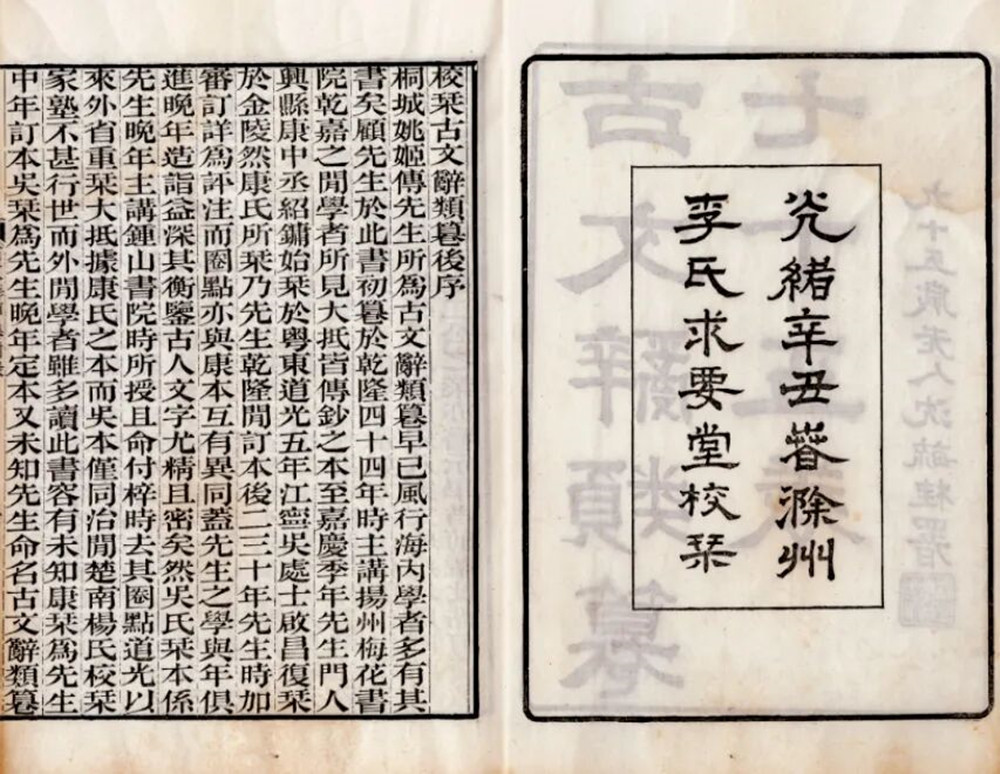 光緒辛丑春滁州
李氏求要堂校栞
校栞古文辭類篹後序
桐城姚姬傳先生所爲古文辭類篹早已風行海內學者多有其
書矣顧先生於此書初篹於乾隆四十四年時主講揚州梅花書
院乾嘉之閒學者所見大抵皆傳鈔之本至嘉慶季年先生門人
興縣康中丞紹鏞始栞於粵東道光五年江寧吳處士啟昌復栞
於金陵然康氏所栞乃先生乾隆閒訂本後二三十年先生時加
審訂詳爲評注而圈點亦與康本互有異同蓋先生之學與年俱
進晚年造詣益深其衡鑒古人文字尤精且密矣然吳氏栞本係
先生晚年主講鍾山書院時所授且命付梓時去其圈點道光以
來外省重栞大抵據康氏之本而吳本僅同治閒楚南楊氏校栞
家塾不甚行世而外閒學者雖多讀此書容有未知康栞爲先生
中年訂本吳栞爲先生晚年定本又未知先生命名古文辭類篹